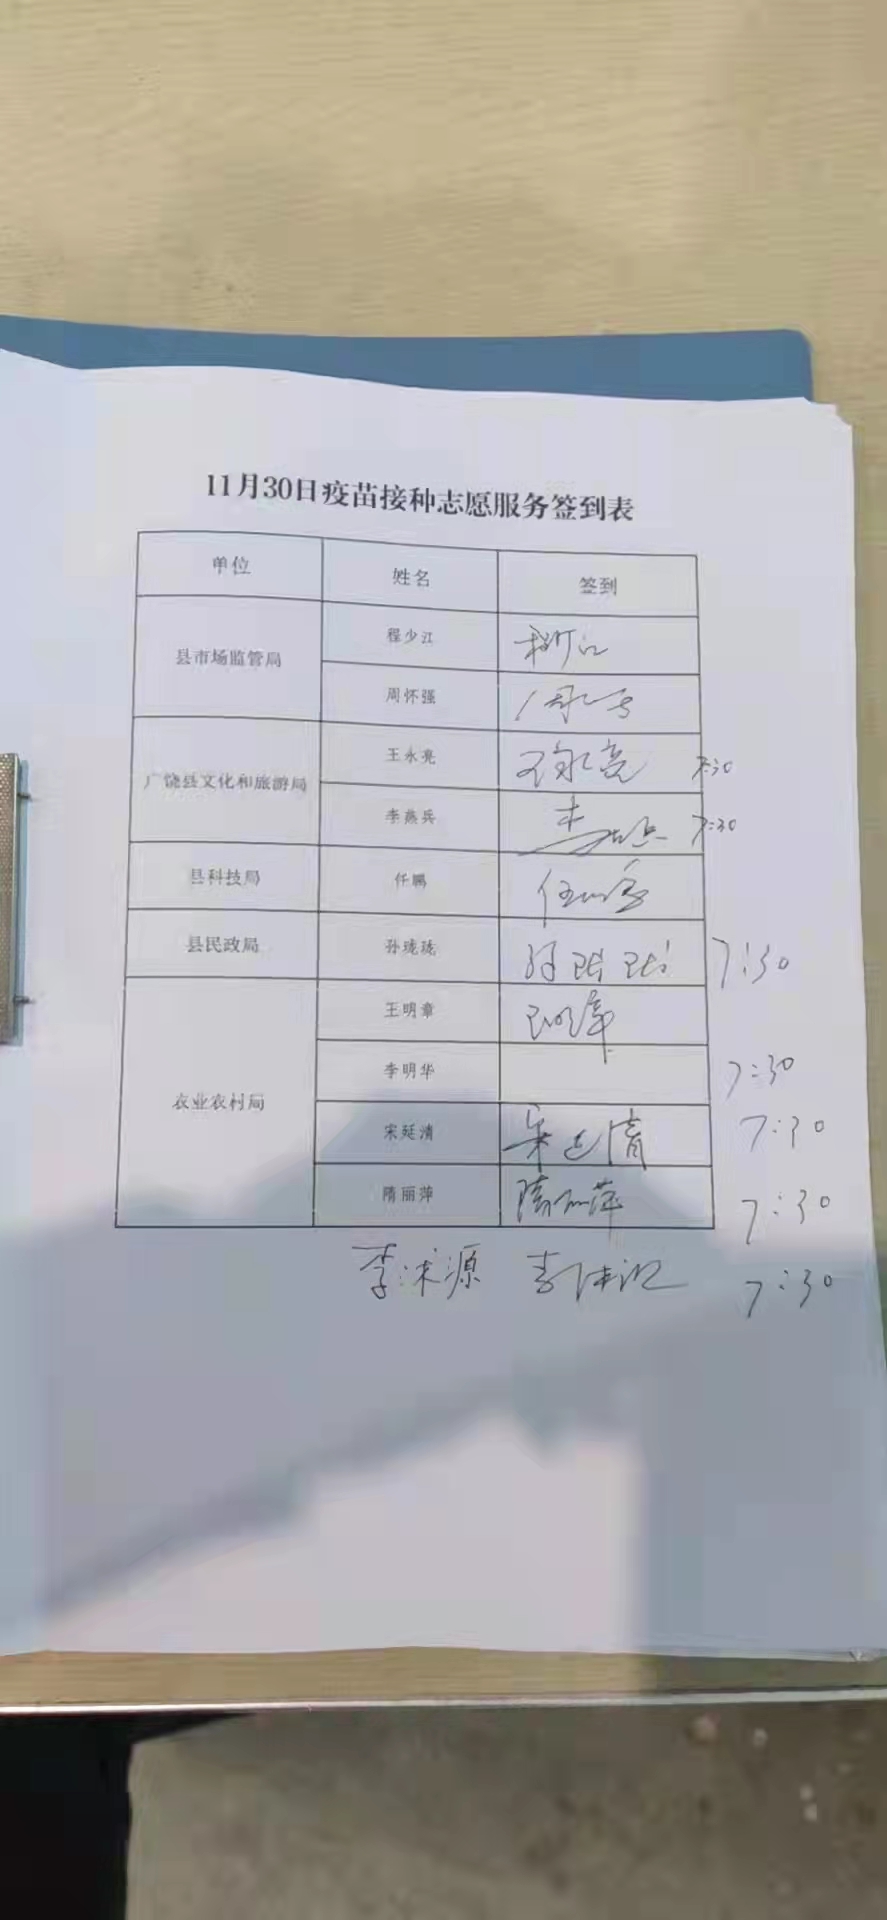 11月30日疫苗接种志愿服务签到表
单位 姓名 签到
县市场监管局 程少江
周怀强
广饶县文化和旅游局 王永亮 王永亮 7:30
李燕兵 7:30
县科技局 任鹏
县民政局 孙珑珑 孙珑珑 7:30
农业农村局 王明章 王明章
李明华 7:30
宋延清 宋延清 7:30
隋丽萍 隋丽萍 7:30
李沭源 7:30